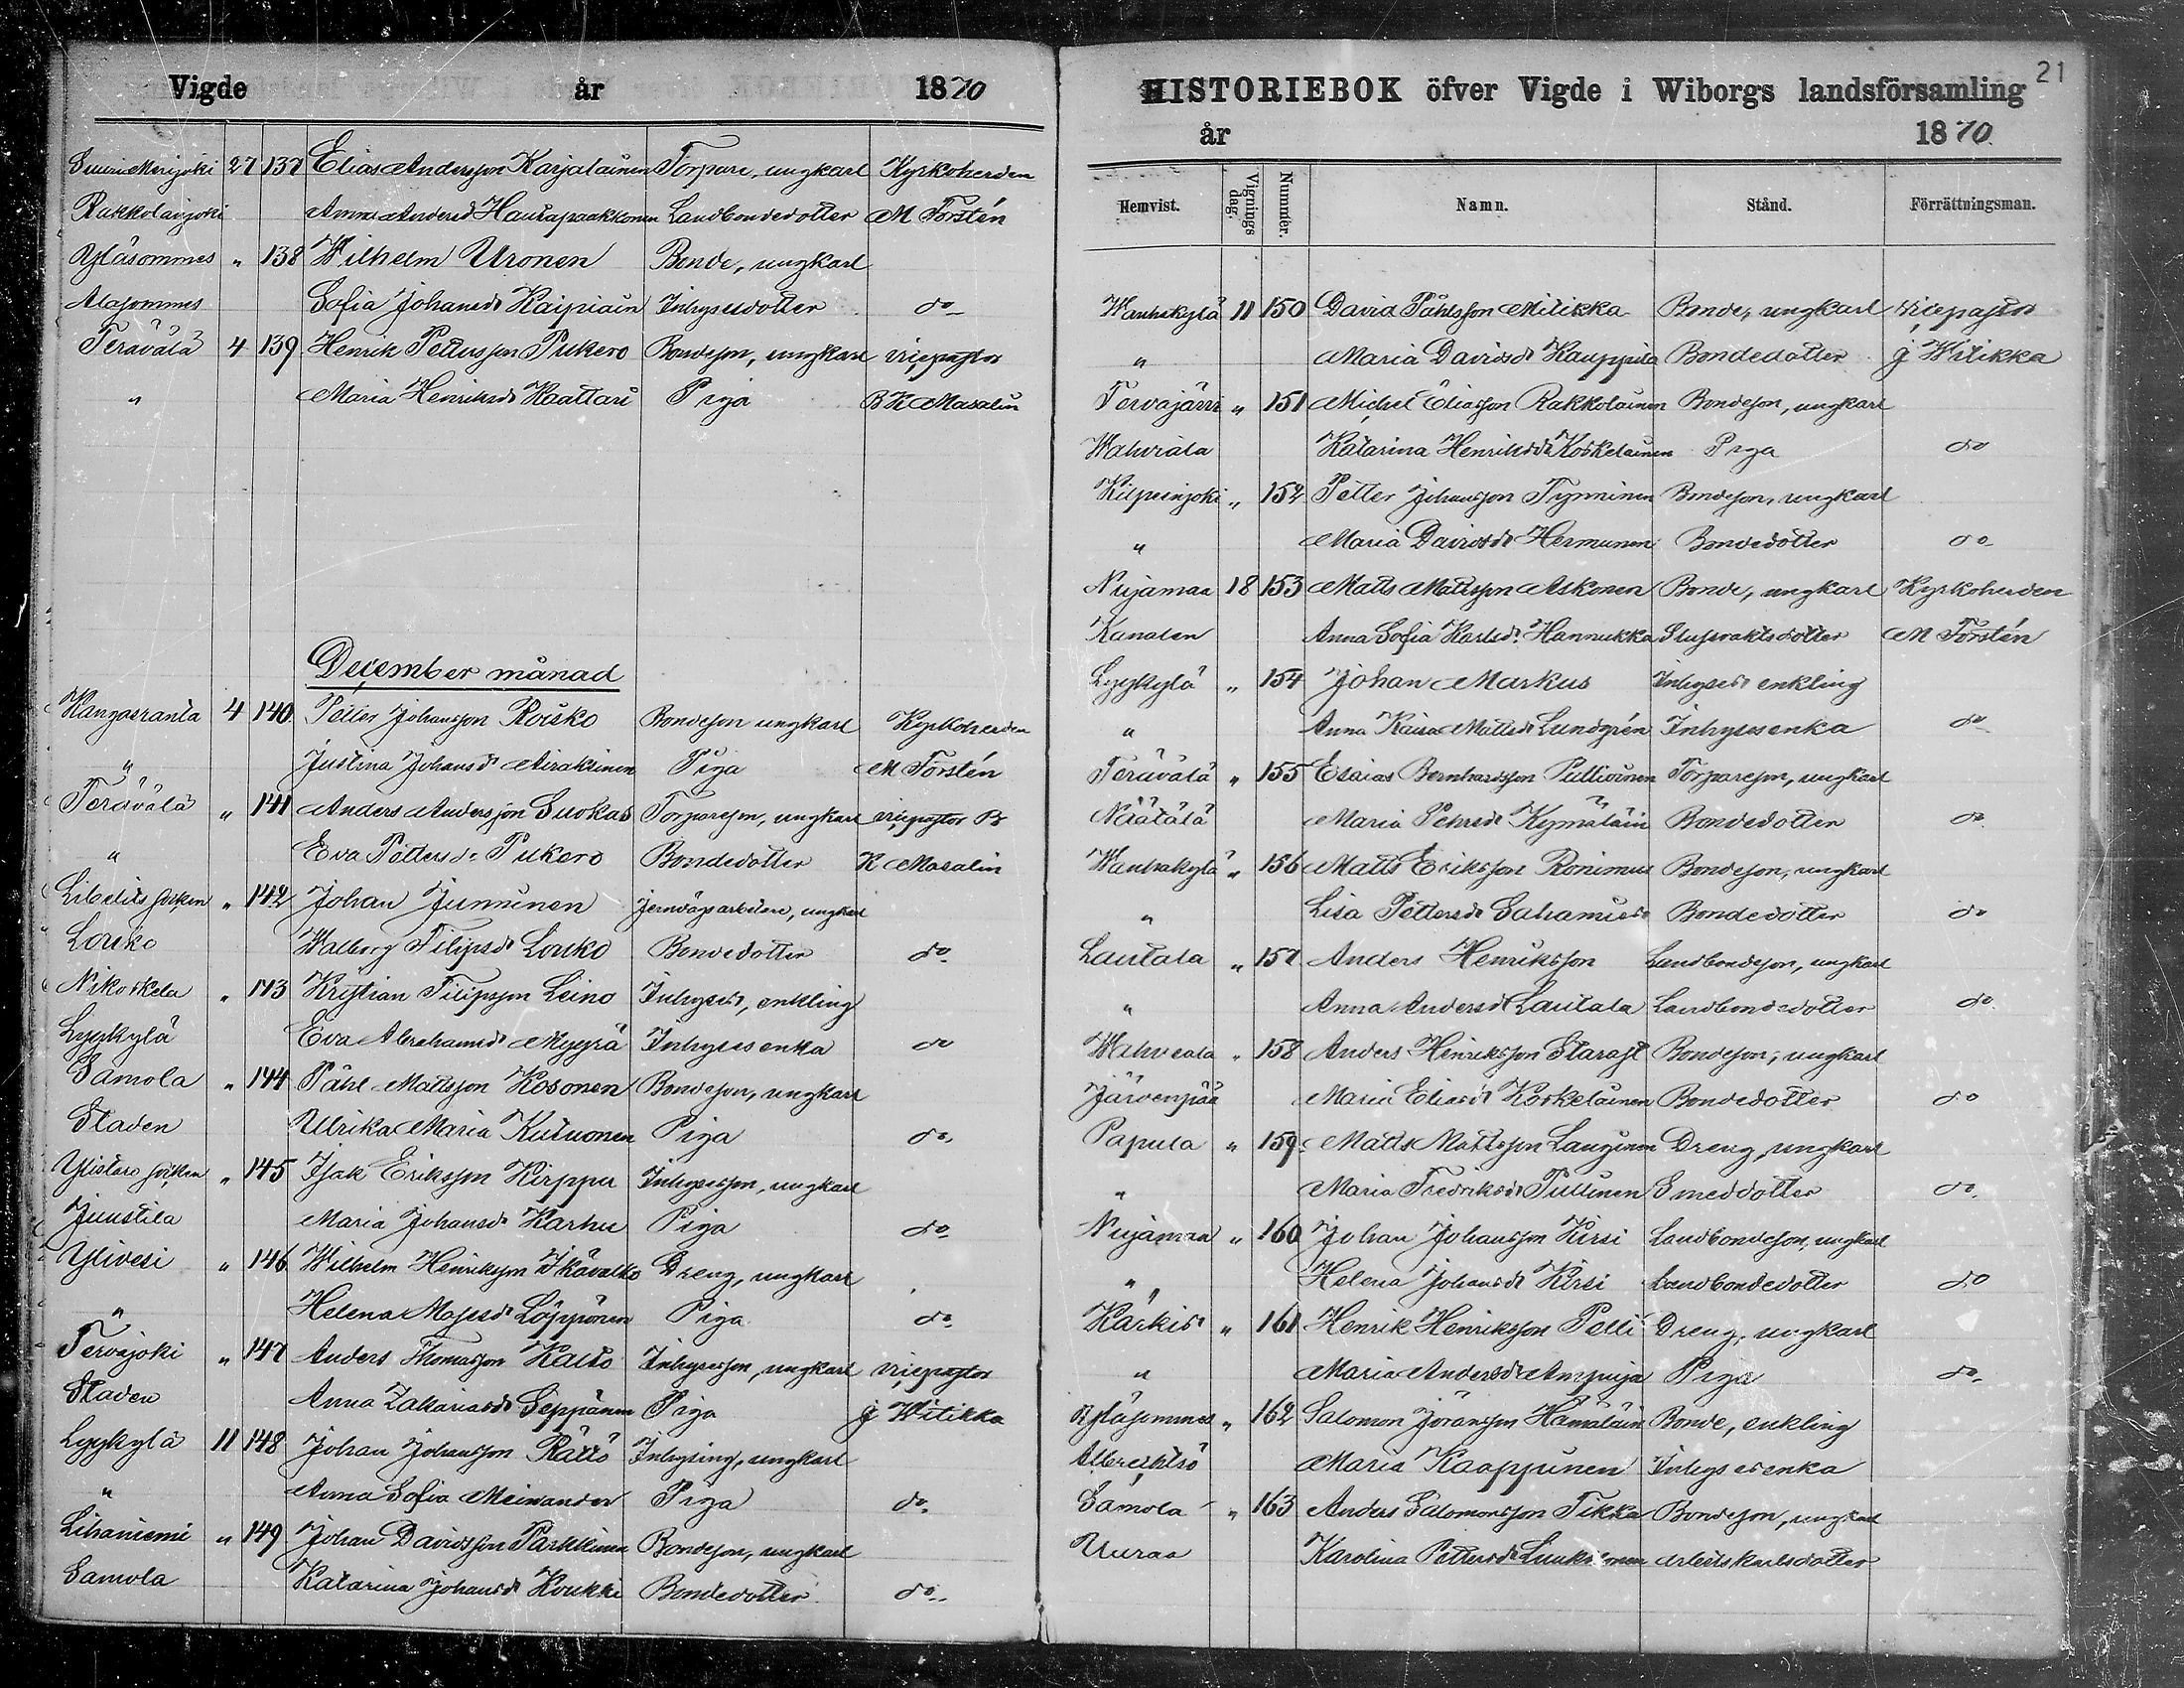 Vigde år 1870
Suuri Merijoki 27 137 Elias Andersson Karjalainen Torpare, ungkarl Kyrkoherden
Rakkolanjoki Anna Andersd Hautapaakkonen Landbondedotter M Forstén
Yläsommes " 138 Wilhelm Uronen Bonde, ungkarl
Alasommes Sofia Johansdr Kaipiain Inhysesdotter do
Terävälä 4 139 Henrik Pettersson Pukero Bondeson, ungkarl vicepastor
" Maria Henriksdr Kaattari Piga B K Masalin
December månad
Kangasranta 4 140 Petter Johansson Roisko Bondeson ungkarl Kyrkoherden
" Justina Johansdr Airaksinen Piga M Forstén
Terävälä " 141 Anders Andersson Suokas Torpareson, ungkarl vicepastor B
" Eva Pettersdr Pukero Bondedotter K Masalin
Libelits socken " 142 Johan Junninen Jernvägsarbetare, ungkarl
Lousko Walborg Filipsdr Lousko Bondedotter do
Nikoskela " 143 Kristian Filipsson Leino Inhyses, enkling
Lyykylä Eva Abrahamsdr Myyrä Inhysesenka do
Samola " 144 Påhl Mattsson Kosonen Bondeson, ungkarl
Staden Ulrika Maria Kutuonen Piga do
Ylistaro socken " 145 Isak Eriksson Kirppu Inhysesson, ungkarl
Juustila Maria Johansdr Karhu Piga do
Ylivesi " 146 Wilhelm Henriksson Ikävalko Dreng, ungkarl
" Helena Mosesdr Löppönen Piga do
Tervajoki " 147 Anders Thomasson Kalto Inhysesson, ungkarl vicepastor
Staden Anna Zakariasdr Seppänen Piga J Witikka
Lyykylä 11 148 Johan Johansson Rättö Inhysing, ungkarl
" Anna Sofia Meinander Piga do
Lihaniemi " 149 Johan Davidsson Parkkinen Bondeson, ungkarl
Samola Katarina Johansdr Koukki Bondedotter do
21
HISTORIEBOK öfver Vigde i Wiborgs landsförsamling
år 1870.
Hemvist. Vignings dag. Nummer. Namn. Stånd. Förrättningsman.
Wanhakylä 11 150 David Påhlsson Mitikka Bonde, ungkarl vicepastor
" Maria Davidsdr Kauppila Bondedotter J Witikka
Tervajärvi " 151 Michel Eliasson Rakkolainen Bondeson, ungkarl
Wahviala Katarina Henriksdr Koskelainen Piga do
Kilpeinjoki " 152 Petter Johansson Tynninen Bondeson, ungkarl
" Maria Davidsdr Hermunen Bondedotter do
Nuijamaa 18 153 Matts Mattsson Askonen Bonde, ungkarl Kyrkoherden
Kanalen Anna Sofia Karlsdr Hannukka Slussvaktsdotter M Forstén
Lyykylä " 154 Johan Markus Inhyses enkling
" Anna Kaisa Mattsdr Lundgrén Inhysesenka do
Terävälä " 155 Esaias Bernhardsson Pulliainen Torpareson, ungkarl
Näätälä Maria Pehrsdr Kymäläin Bondedotter do
Wanhakylä " 156 Matts Eriksson Ronimus Bondeson, ungkarl
" Lisa Pettersdr Sahamies Bondedotter do
Lautala " 157 Anders Henriksson Landbondeson, ungkarl
" Anna Andersdr Lautala Landbondedotter do
Wahviala " 158 Anders Henriksson Starast Bondeson, ungkarl
Järvenpää Maria Eliasdr Koskelainen Bondedotter do
Papula " 159 Matts Mattsson Lauginen Dreng, ungkarl
" Maria Fredriksdr Pullinen Smeddotter do
Nuijamaa " 160 Johan Johansson Kirsi Landbondeson, ungkarl
" Helena Johansdr Kirsi Landbondedotter do
Kärkis " 161 Henrik Henriksson Pelli Dreng, ungkarl
" Maria Andersdr Ampuja Piga do
Yläsommes " 162 Salomon Jöransson Hämäläin Bonde, enkling
Albrechtsö Maria Kaappunen Inhysesenka
Samola " 163 Anders Salomonsson Tikka Bondeson, ungkarl
Uuraa Karolina Pettersdr Luukkonen Arbetskarlsdotter